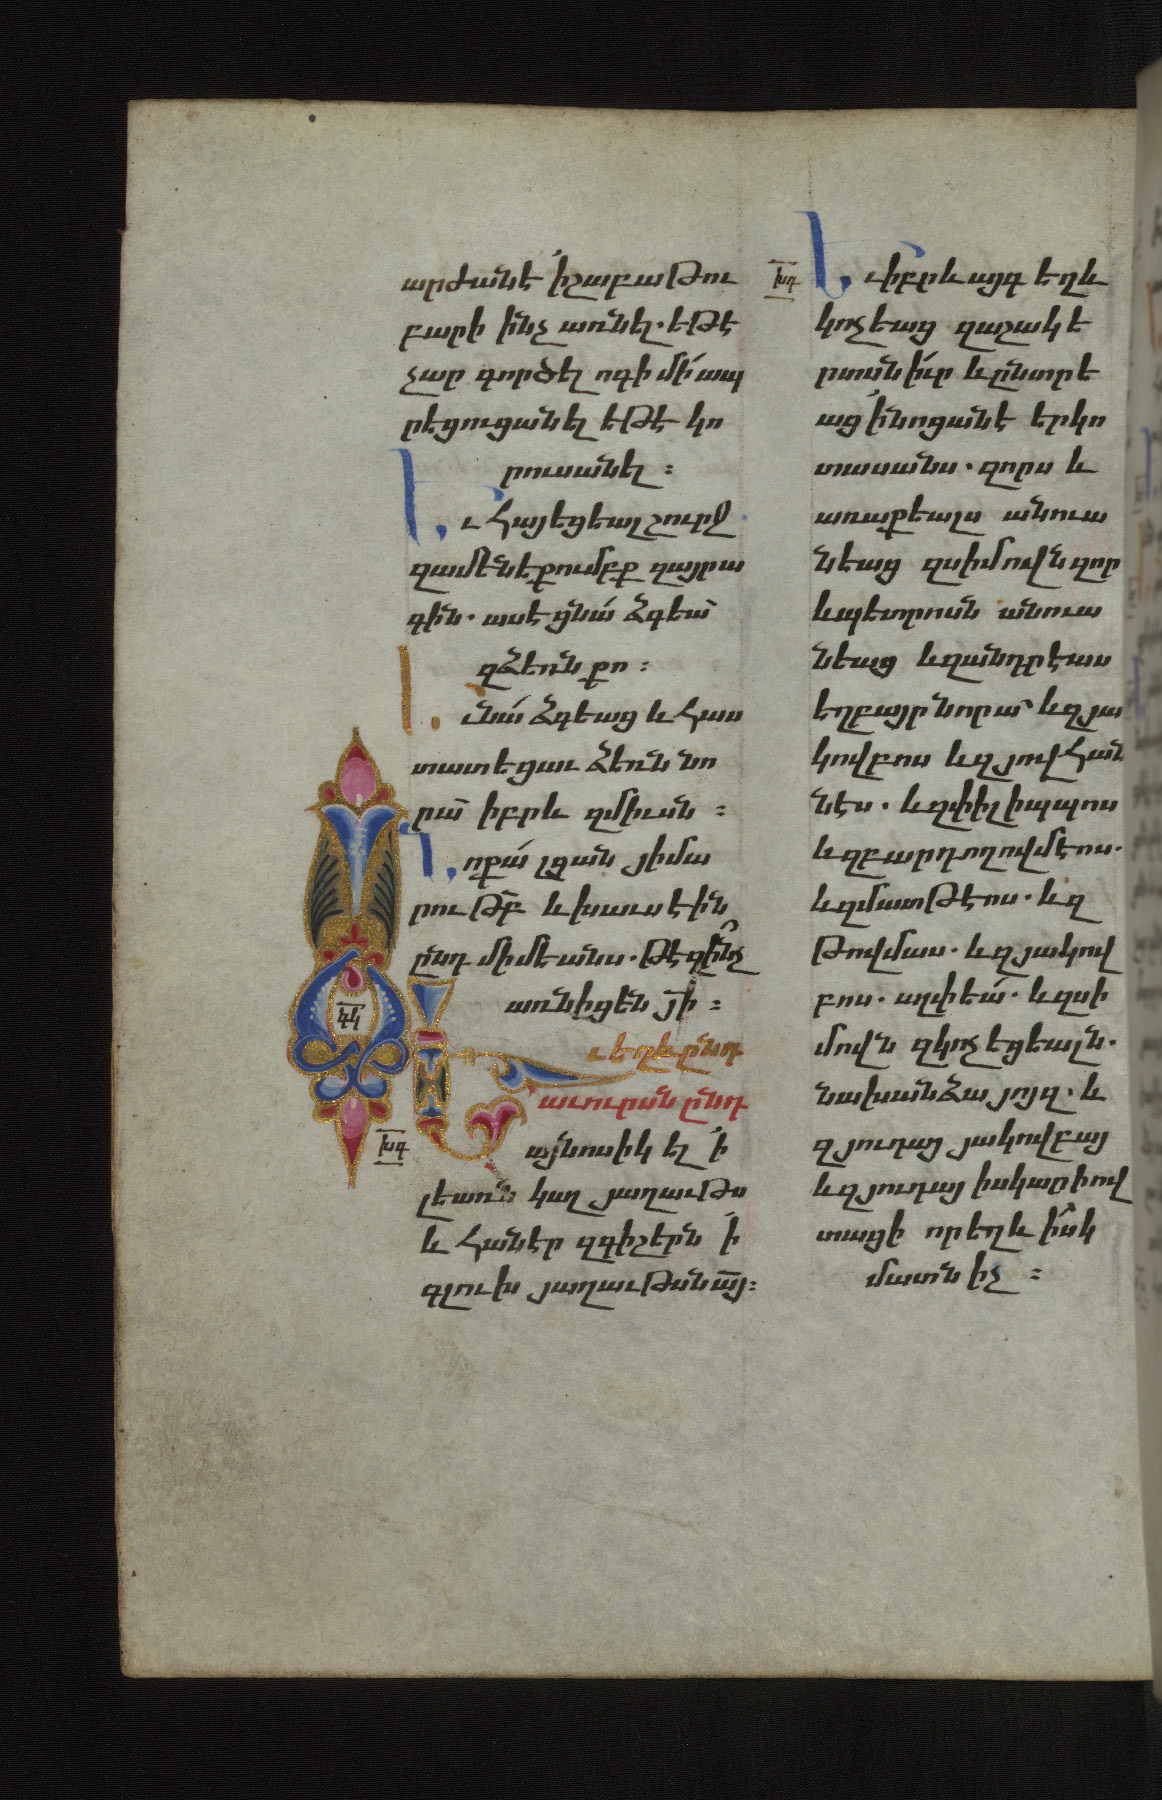 արժանէ ՛ի շաբաթու
բարի ինչ առնել. եթէ
չար գործել ոգի մի ապ
րեցուցանել եթէ կո
րուսանել ։
Եւ հայեցեալ շուրջ
զամենեքումբք զայրա
գին. ասէ ցնա ձգեա
զձեռն քո ։
Եւ նա ձգեաց և հաս
տատեցաւ ձեռն նո
րա իբրև զմիւսն ։
Նոքա լցան յիմա
րութբ և խաւսէին
ընդ միմեանս. թէ զինչ
առնիցեն յի ։
Եւ եղև ընդ
աւուրսն ընդ
խգ
այնոսիկ ել ՛ի
լեառն կալ յաղաւթս
և հանէր զգիշերն ՛ի
գլուխ յաղաւթսն այ։
խդ
Եւ իբրև այգ եղև
կոչեաց զաշակե
րտսն իւր և ընտրե
աց ՛ի նոցանէ երկո
տասանս. զորս և
առաքեալս անուա
նեաց զսիմովն զոր
և պետրոսն անուա
նեաց և զանդրէաս
եղբայր նորա և զյա
կովբոս և զյովհան
նէս. և զփիլիպպոս
և զբարդողովմէոս.
և զմատթէոս. և զ
թովմաս. և զյակով
բոս. ալփեա. և զսի
մովն զկոչեցեալն.
նախանձայոյզ. և
զյուդայ յակովբայ
և զյուդայ իսկարիով
տացի որ եղև իսկ
մատնիչ ։